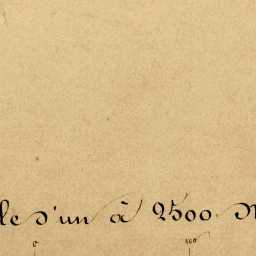 le d'un à 2500.
0 100